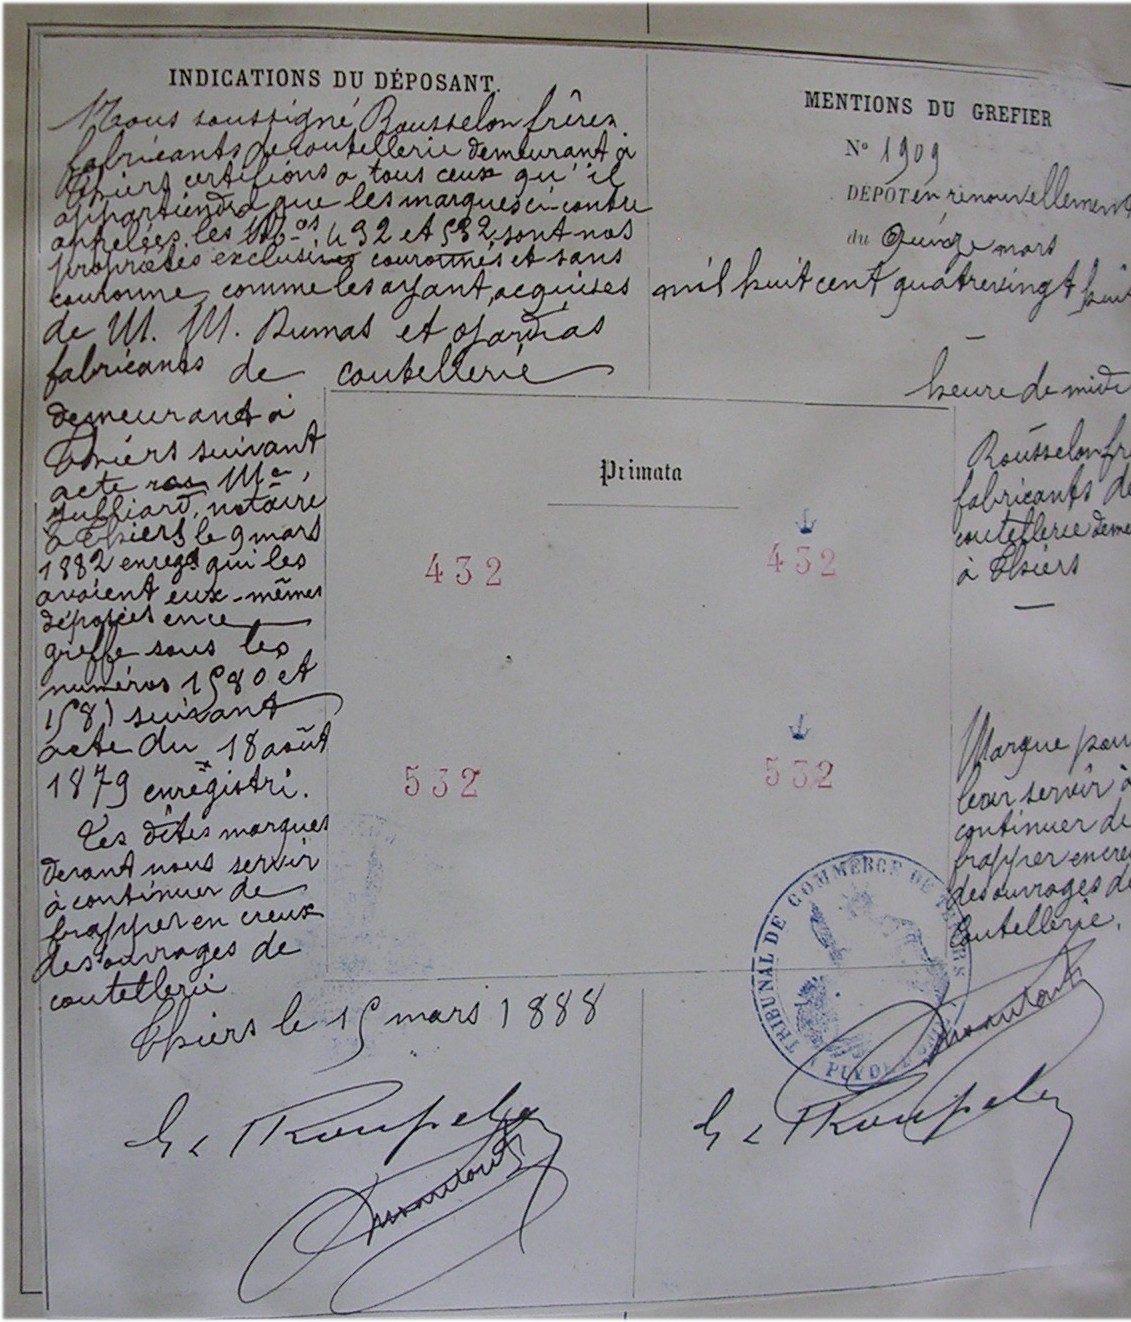 INDICATIONS DU DÉPOSANT.
Nous soussigné, Rousselon frères
fabricants de coutellerie demeurant à
Thiers certifions a tous ceux qu'il
appartiendra que les marques ci-contre
appelées les Nos 432 et 532, sont nos
propriétés exclusives couronnés et sans
couronne, comme les ayant acquises
de M. M. Dumas et Ojardias
fabricants de coutellerie
demeurant à
Thiers suivant
acte Me
Julliard, notaire
à Thiers, le 9 mars
1882 enregé qui les
avaient eux-mêmes
déposées en ce
greffe sous les
numéros 1580 et
1581 suivant
acte du 18 août
1879 enregistri.
Les dîtes marques
devant nous servir
à continuer de
frapper en creux
des ouvrages de
coutellerie
Thiers le 15 mars 1888
MENTIONS DU GREFIER
No 1909
DEPOT en renouvellement
du Quinze mars
mil huit cent quatrevingt huit
heure de midi
Primata
432
432
532
532
Rousselon fr
fabricants de
coutellerie deme
à Thiers
Marque pour
leur servir à
continuer de
frapper en creu
des ouvrages de
Coutellerie.
TRIBUNAL DE COMMERCE DE THIERS
PUY DE DOME